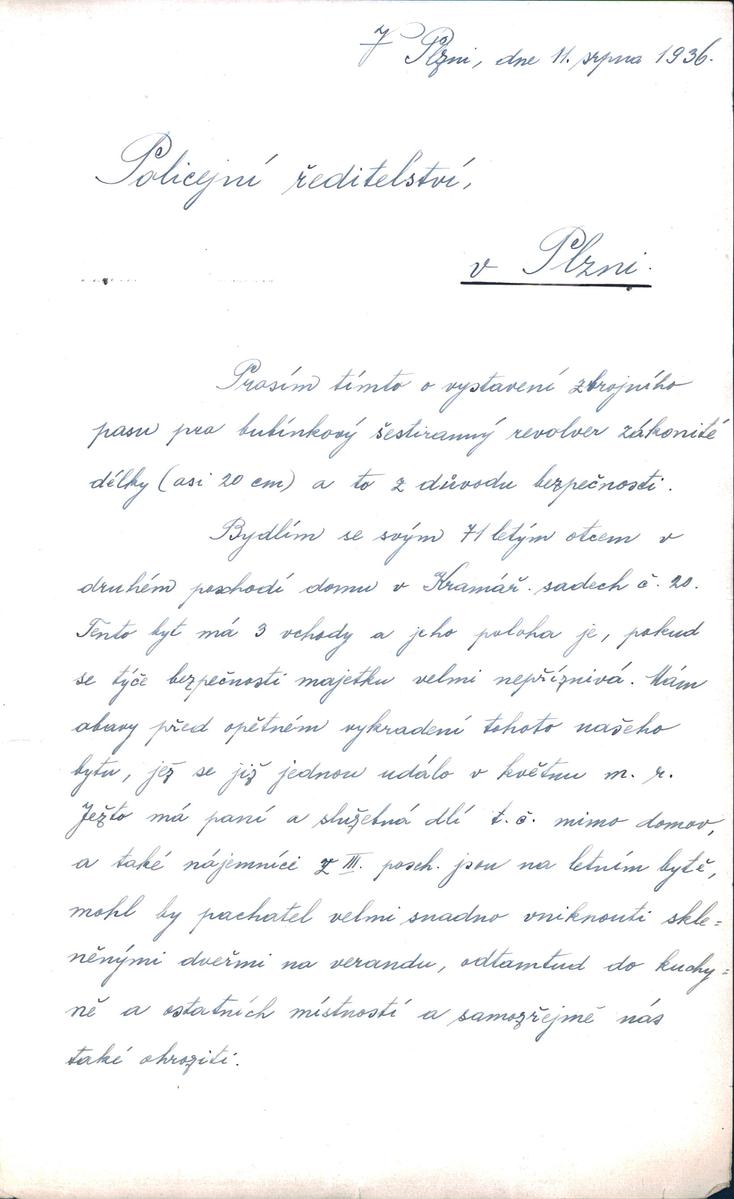 V Plzni, dne 11. srpna 1936.
Policejní ředitelství,
v Plzni.
Prosím tímto o vystavení zbrojního
pasu pro bubínkový šestiranný revolver zákonité
délky (asi 20 cm) a to z důvodu bezpečnosti.
Bydlím se svým 71 letým otcem v
druhém poschodí domu v Kramář. sadech č. 20.
Tento byt má 3 vchody a jeho poloha je, pokud
se týče bezpečnosti majetku velmi nepříznivá. Mám
obavy před opětném vykradení tohoto našeho
bytu, jež se již jednou událo v květnu m. r.
Ježto má paní a služebná dlí t. č. mimo domov,
a také nájemníci z III. posch. jsou na letním bytě,
mohl by pachatel velmi snadno vniknouti skle=
něnými dveřmi na verandu, odtamtud do kuchy=
ně a ostatních místností a samozřejmě nás
také ohroziti.